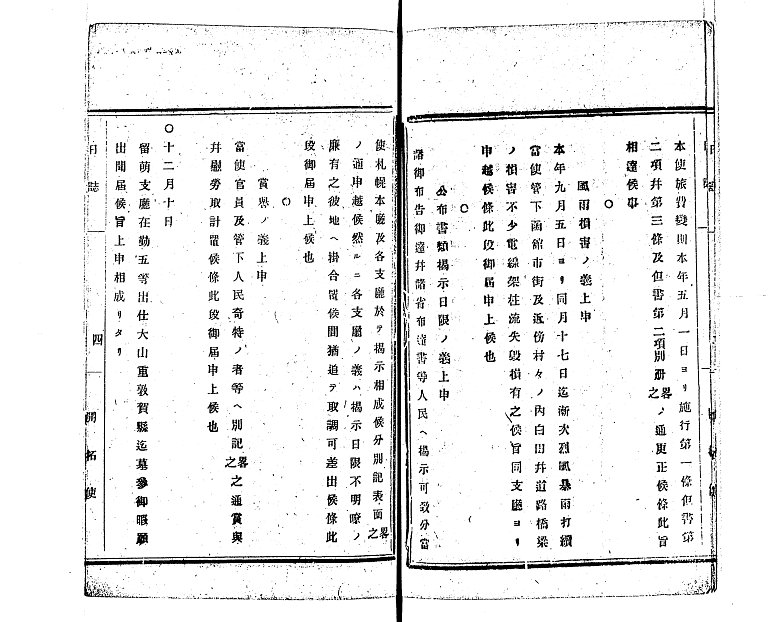 本使旅費變則本年五月一日ヨリ施行第一條但書第
二項幷第三條及但書第二項別册略之ノ通更正候條此旨
相達候事
○
風雨損害ノ義上申
本年九月五日ヨリ同月十七日迄漸次烈風暴雨打續
當使管下函館市街及近傍村々ノ內白田幷道路橋梁
ノ損害不少電線架柱流失毀損有之候旨同支廳ヨリ
申越候條此段御屆申上候也
○
公布書類揭示日限ノ義上申
諸御布告御達幷諸省布達書等人民ヘ揭示可致分當
使札幌本廳及各支廳於テ揭示相成候分別記表面略之
ノ通申越候然ルニ各支廳ノ義ハ揭示日限不明瞭ノ
廉有之彼地ヘ掛合置候間猶追テ取調可差出候條此
段御屆申上候也
○
賞譽ノ義上申
當使官員及管下人民奇特ノ者等ヘ別記略之之通賞與
幷慰勞取計置候條此段御屆申上候也
○十二月十日
留萌支廳在勤五等出仕大山重敦賀縣迄墓參御暇願
出聞屆候旨上申相成リタリ
日誌
四
開拓使